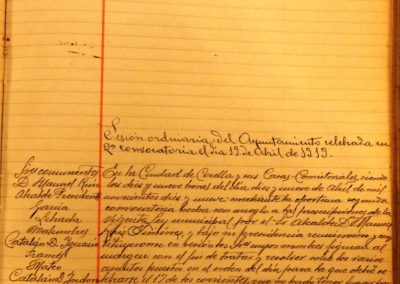 Sesión ordinaria del Ayuntamiento celebrada en
2ª convocatoria el dia 19 de Abril de 1919.
Sres concurrentes
D. Manuel Ruiz
Alcalde Presidente
Garcia
Matumbres
Catalán D. Ignacio
Frames
Mateo
Catalán D.
En la Ciudad de Corella y sus Casas Consistoriales, siendo
las diez y nueve horas del dia diez y nueve de Abril de mil
novecientos diez y nueve mediante la oportuna segunda
convocatoria hecha con arreglo a las prescripciones de la
vigente ley municipal por el Sr Alcalde D. Manuel
Ruiz y bajo su presidencia reunieronse y
constituyeronse en sesion los cuyos nombres figuran al
margen con el fin de tratar y resolver sobre los varios
asuntos puestos en el orden del dia para la que debió ce-
lebrarse el 17 de los corrientes, que no pudo tener lugar